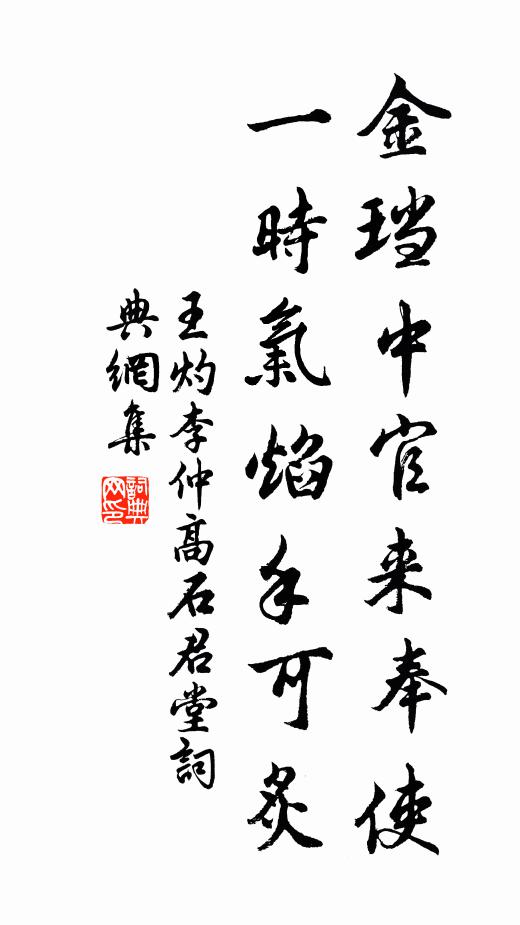 金珰中官来奉使
一時氣焰手可炙
王灼李仲高石君堂詞
典網集
詞典网印